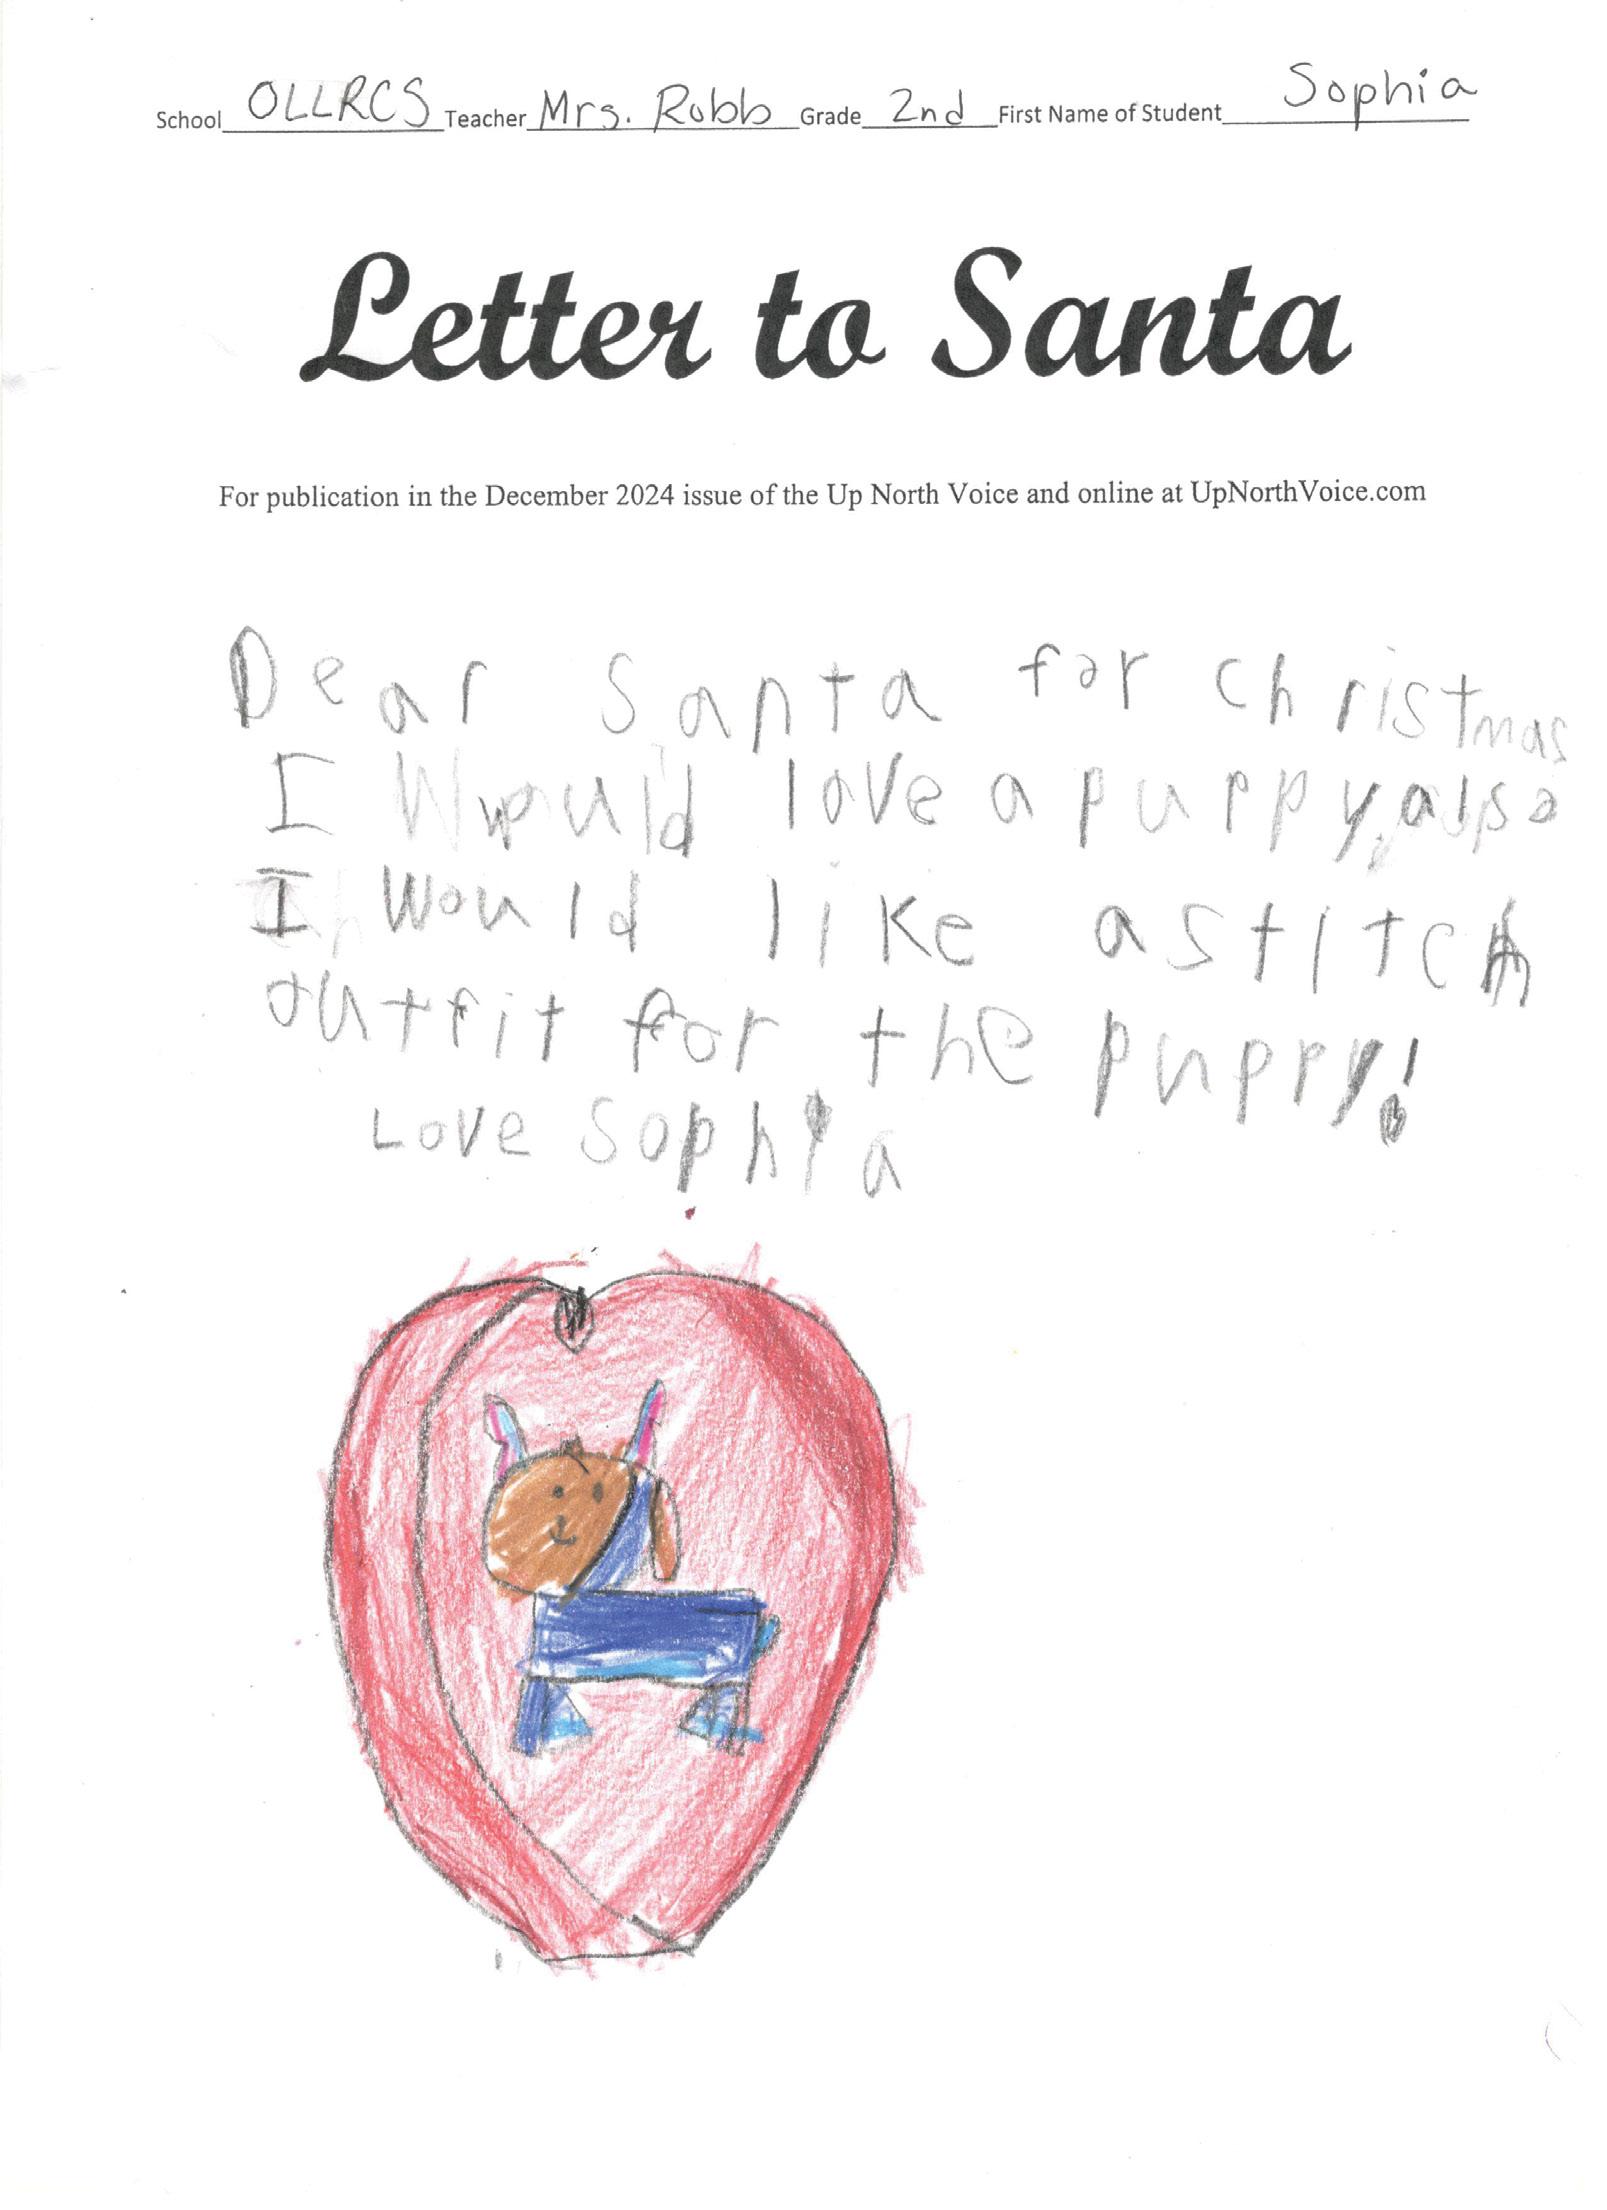 School OLLRCS Teacher Mrs. Robb Grade 2nd First Name of Student Sophia
Letter to Santa
For publication in the December 2024 issue of the Up North Voice and online at UpNorthVoice.com
Dear Santa for christmas
I Would love a puppy, also
I Would like a stitch
outfit for the puppy!
Love Sophia